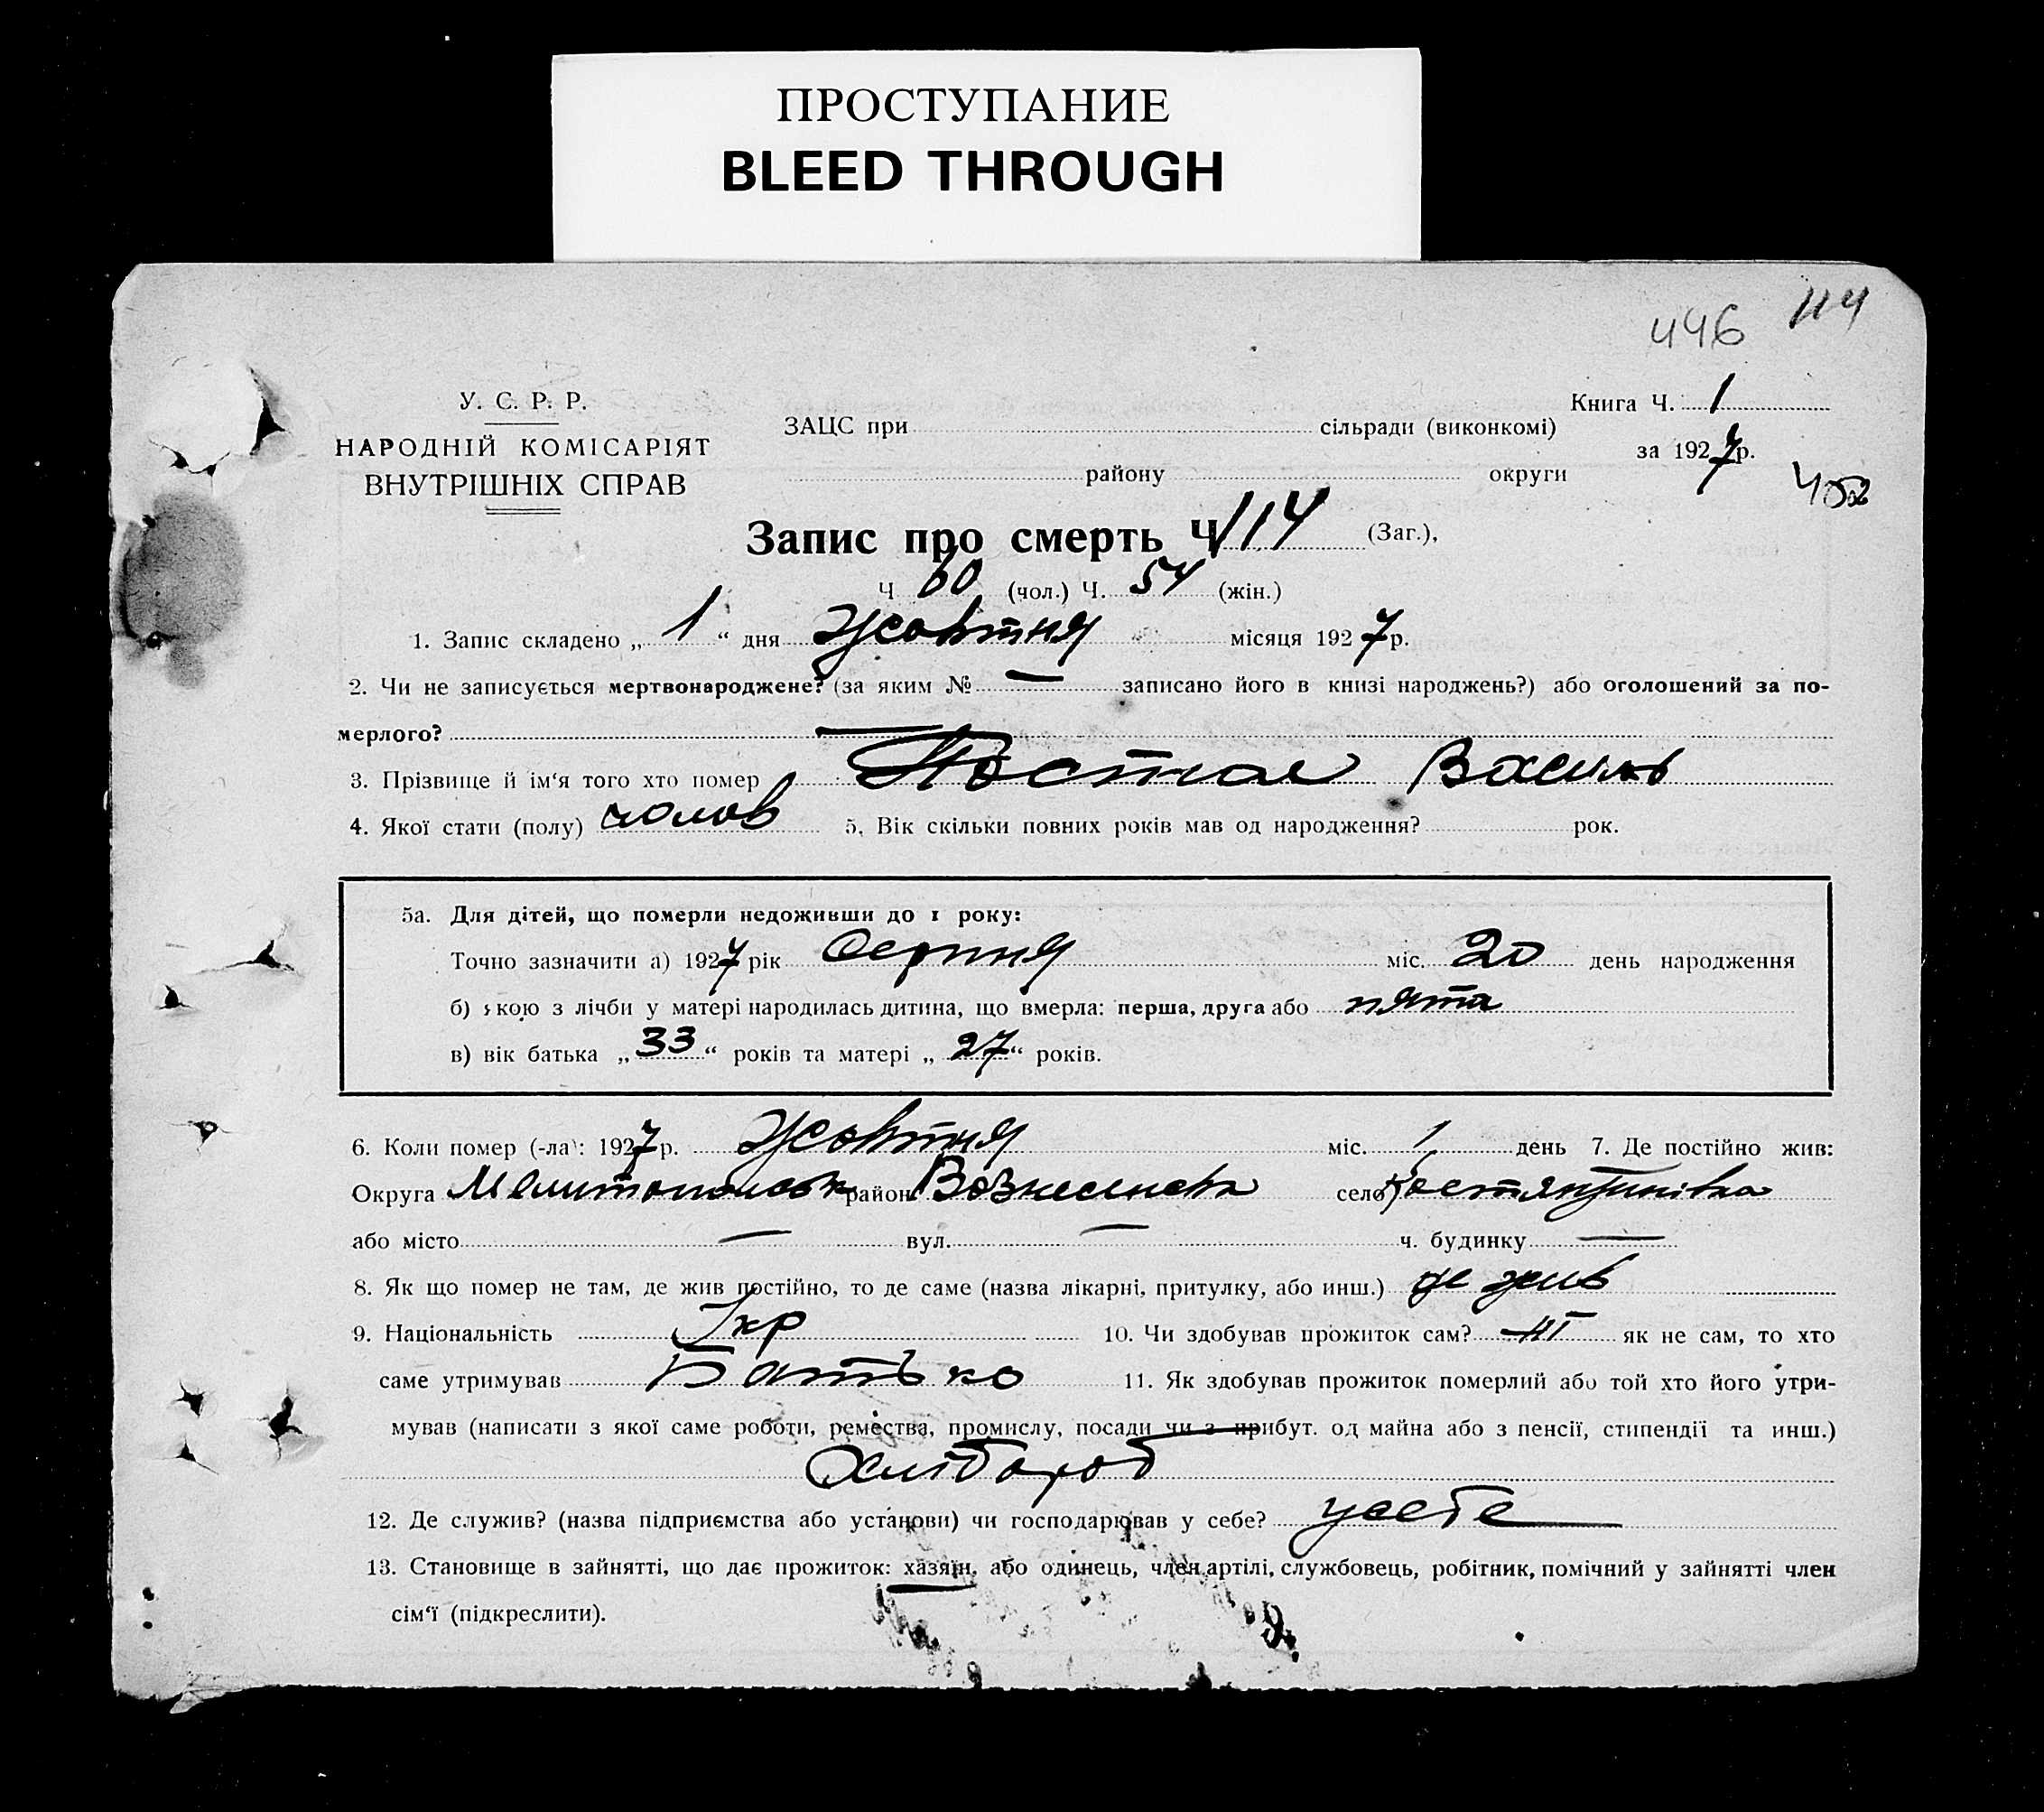 ПРОСТУПАНИЕ
BLEED THROUGH
446 114
У. С. Р. Р.
НАРОДНІЙ КОМІСАРІЯТ
ВНУТРІШНІХ СПРАВ
Книга Ч. 1
за 1927 р.
ЗАЦС при сільради (виконкомі)
району округи
452
Запис про смерть Ч 114 (Заг.),
Ч 60 (чол.) Ч. 54 (жін.)
1. Запис складено „ 1 “ дня Жовтня місяця 1927 р.
2. Чи не записується мертвонароджене? (за яким № — записано його в книзі народжень?) або оголошений за по-
мерлого? —
3. Прізвище й ім‘я того хто помер Постол Василь
4. Якої стати (полу) чолов 5. Вік скільки повних років мав од народження? рок.
5а. Для дітей, що померли недоживши до 1 року:
Точно зазначити а) 1927 рік Серпня міс. 20 день народження
б) якою з лічби у матері народилась дитина, що вмерла: перша, друга або пята
в) вік батька „ 33 “ років та матері „ 27 “ років.
6. Коли помер (-ла): 1927 р. Жовтня міс. 1 день 7. Де постійно жив:
Округа Мелитопольськ район Вознесенськ село Костянтинівка
або місто — вул. — ч. будинку —
8. Як що помер не там, де жив постійно, то де саме (назва лікарні, притулку, або инш.) де жив
9. Національність Укр 10. Чи здобував прожиток сам? ні як не сам, то хто
саме утримував Батько 11. Як здобував прожиток померлий або той хто його утри-
мував (написати з якої саме роботи, ремества, промислу, посади чи з прибут. од майна або з пенсії, стипендії та инш.)
Хлібороб
12. Де служив? (назва підприємства або установи) чи господарював у себе? у себе
13. Становище в зайнятті, що дає прожиток: хазяїн, або одинець, член артілі, службовець, робітник, помічний у зайнятті член
сім‘ї (підкреслити).